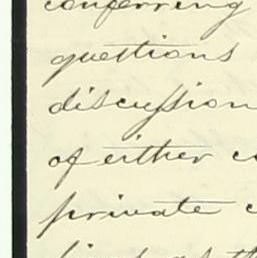 conferring
questions
discussion
of either
private